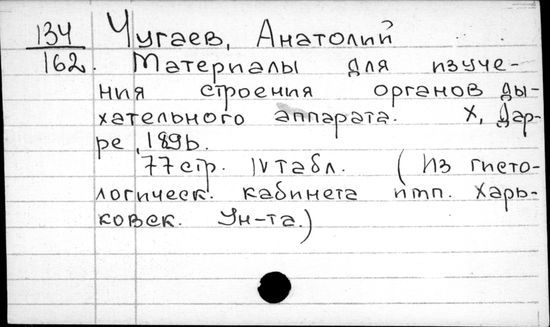 134 Чугаев, Анатолий
162. Материалы для изуче-
ния строения органов ды-
хательного аппарата. Х, Дар-
ре, 1896.
77 стр. IV табл. (Из гисто-
логическ. кабинета имп. Харь-
ковск. Ун-та.)